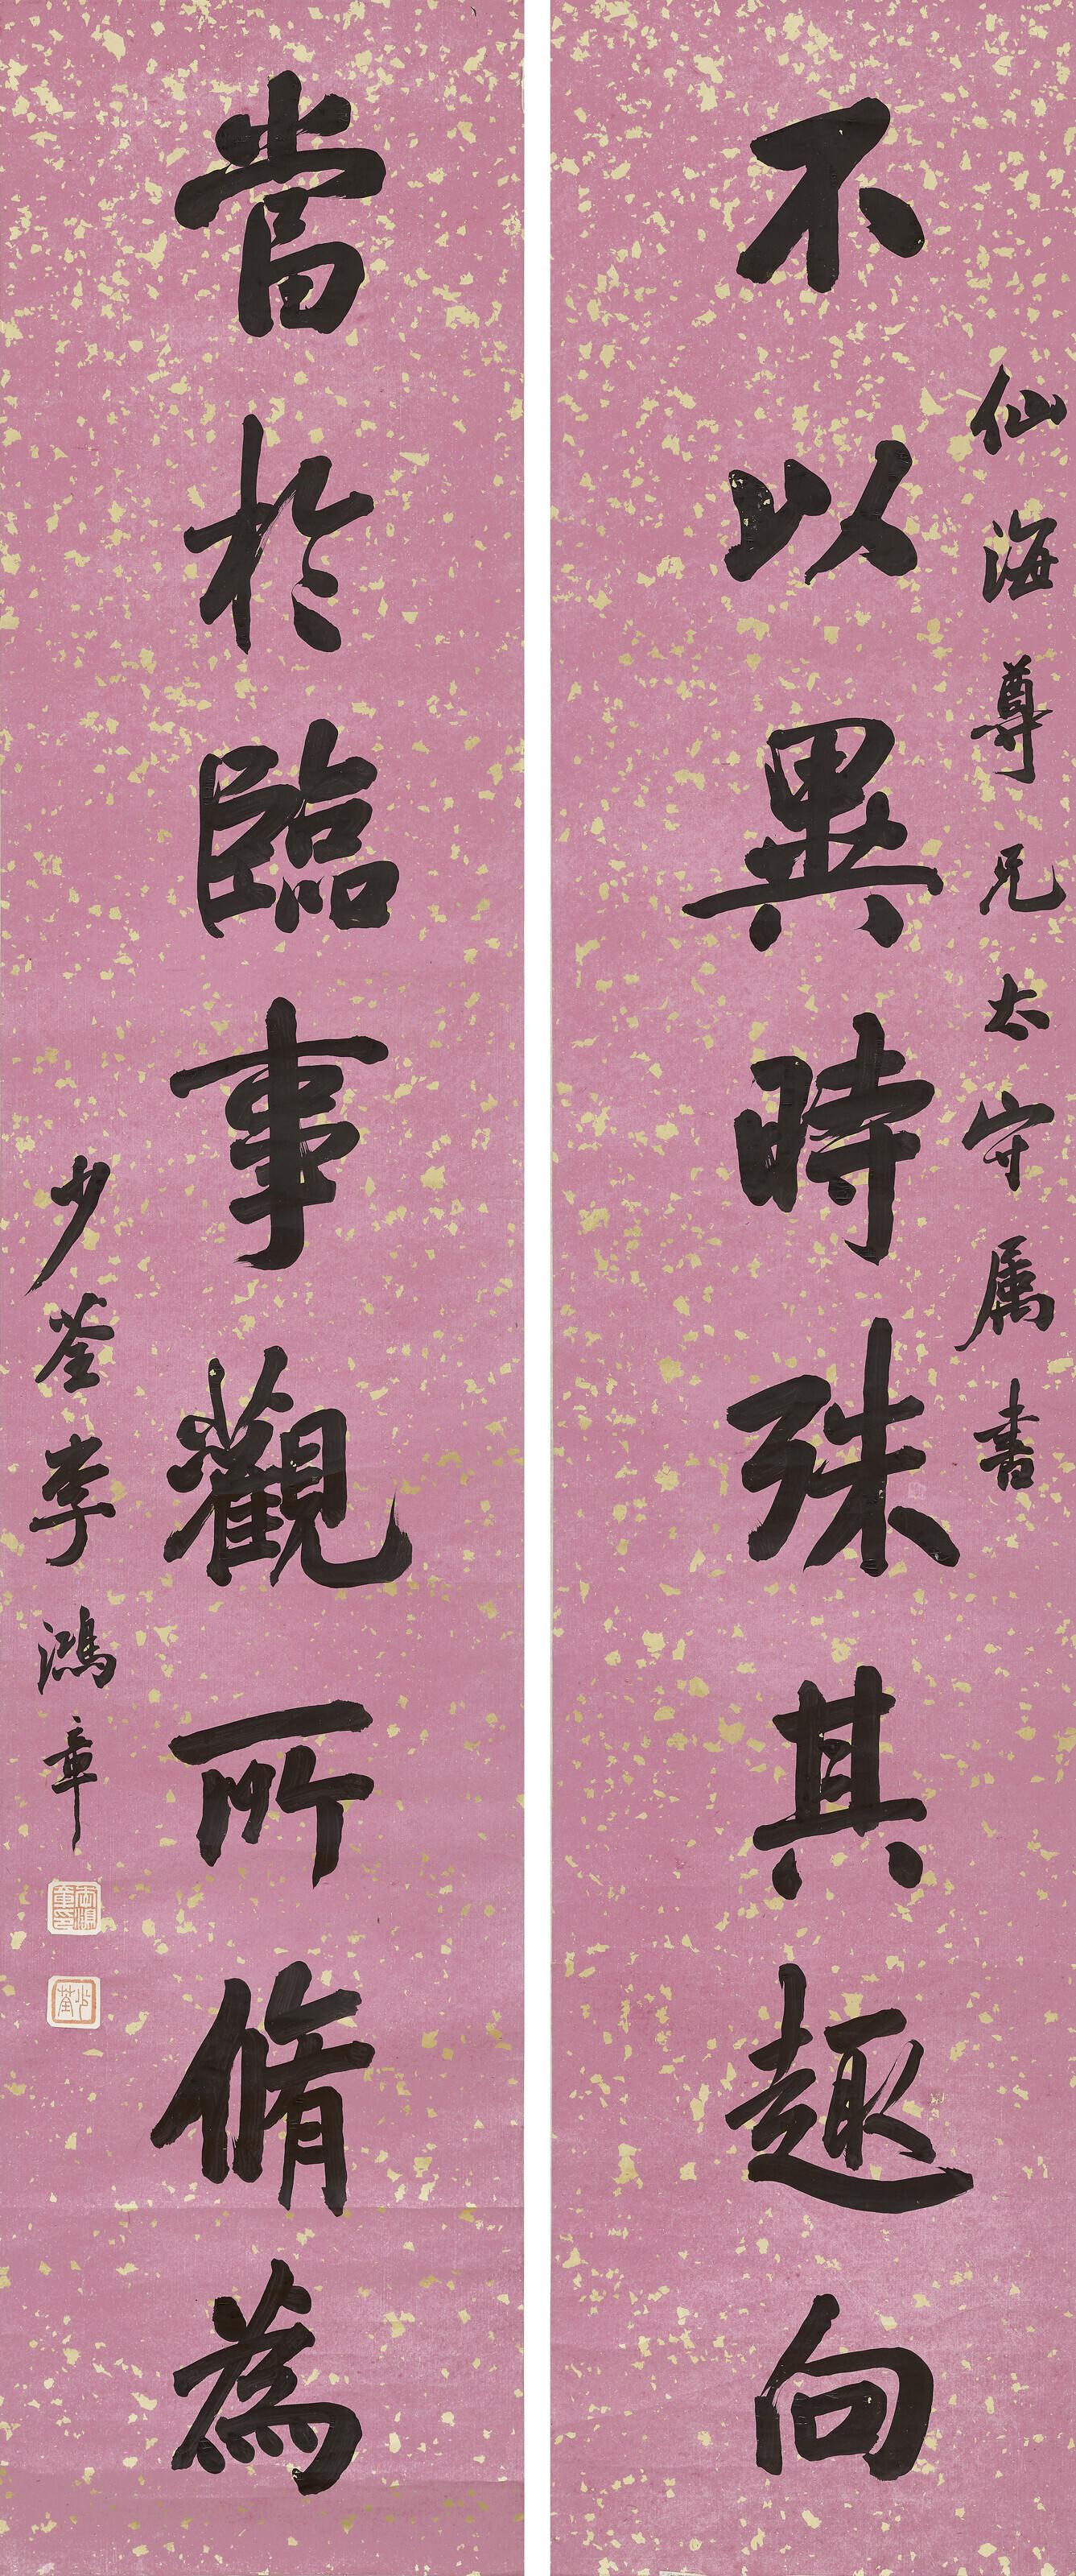 仙海尊兄太守属書
不以異時殊其趣向
當於臨事觀所脩為
少荃李鴻章
李鴻章印
少荃